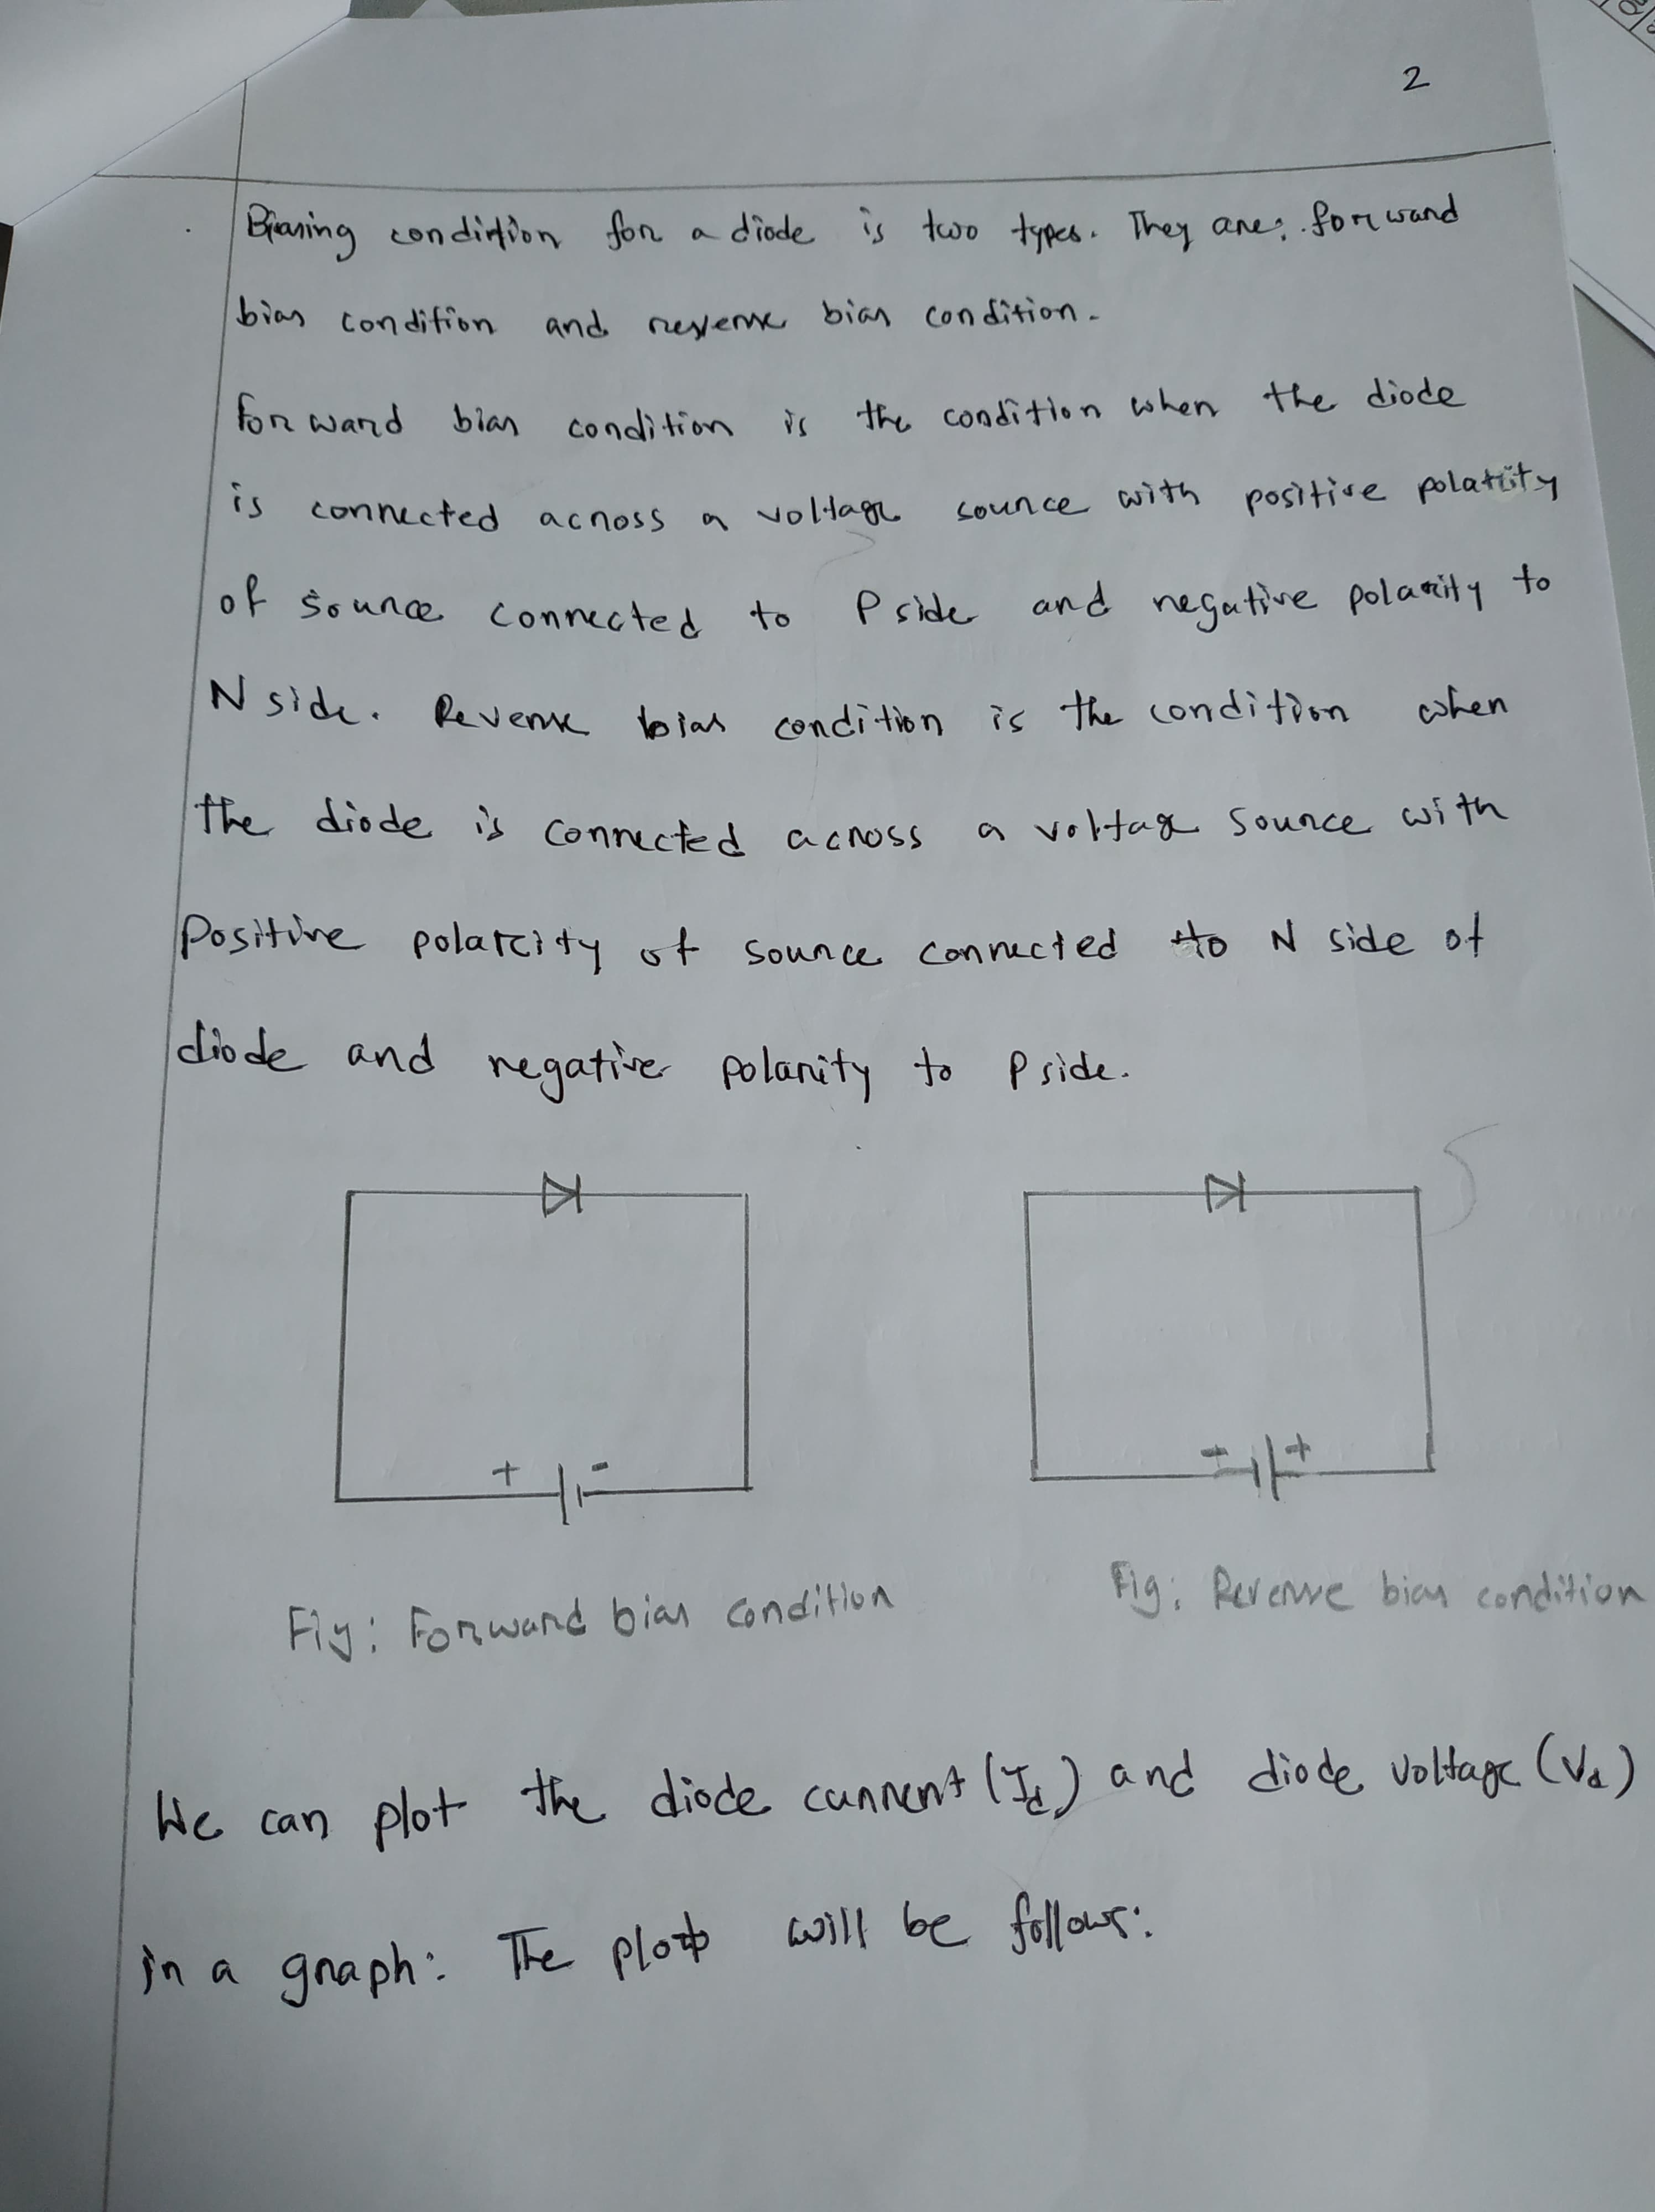 2
Biasing condition for a diode is two types. They are: forward
bias condition and reverse bias condition.
Forward bias condition is the condition when the diode
is connected across a voltage source with positive polarity
of source connected to P side and negative polarity to
N side. Reverse bias condition is the condition when
the diode is connected across a voltage source with
Positive polarity of source connected to N side of
diode and negative polarity to P side.
+ - - +
Fig: Forward bias condition Fig: Reverse bias condition
We can plot the diode current (Id) and diode voltage (Vd)
in a graph: The plot will be follows: